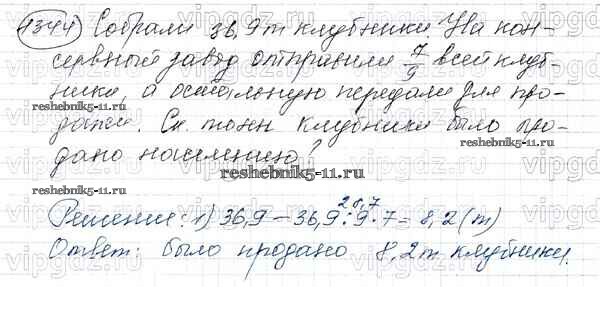 1344) Собрали 36,9т клубники. На кон-
сервный завод отправили 7/9 всей клуб-
ники, а остальную передали для про-
дажи. Ск. тонн клубники было про-
дано населению?
reshebnik5-11.ru
reshebnik5-11.ru
reshebnik5-11.ru
reshebnik5-11.ru
28,7
Решение: 1) 36,9 - 36,9 : 9 · 7 = 8,2 (т)
Ответ: было продано 8,2т клубники.
vipgdz.ru